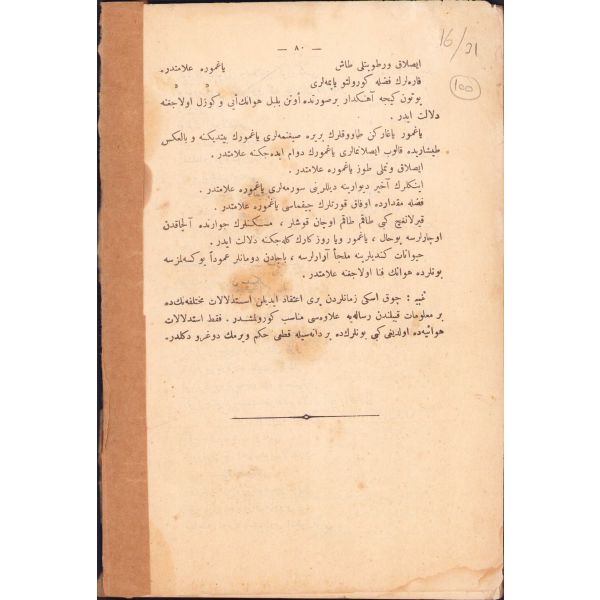 — ٨٠ —
16/31
100
ايصلاق ورطوبتلى طاش ياغموره علامتدر.
قاره‌لرك فضله كورولتو يايمه‌لرى » »
بوتون كيجه آهنكدار برصورتده اوتن بلبل هوانك ايى وكوزل اولاجغنه
دلالت ايدر .
ياغمور ياغاركن طاووقلرك بريره صيغنمه‌لرى ياغمورك بيتديكنه و بالعكس
طيشاريده قالوب ايصلانمالرى ياغمورك دوام ايده‌جكنه علامتدر .
ايصلاق ونملى طوز ياغموره علامتدر .
اينكلرك آخير ديوارينه ديللرينى سورمه‌لرى ياغموره علامتدر .
فضله مقدارده اوفاق قورتلرك چيقماسى ياغموره علامتدر .
قيرلانغيج كبى طاقم طاقم اوچان قوشلر ، مسكنلرك جوارنده آلچاقدن
اوچارلرسه بوحال ، ياغمور ويا روزكارك كله‌جكنه دلالت ايدر .
حيوانات كنديلرينه ملجأ آرارلرسه ، باجادن دومانلر عموداً يوكسه‌لمزسه
بونلرده هوانك فنا اولاجغنه علامتدر .
تنبيه : چوق اسكى زمانلردن برى اعتقاد ايديلن استدلالات مختلفه‌نك‌ده
بر معلومات قبيلندن رساله‌يه علاوه‌سى مناسب كورولمشدر . فقط استدلالات
هوائيه‌ده اولديغى كبى بونلرك‌ده بر دانه‌سيله قطعى حكم ويرمك دوغرو دكلدر.